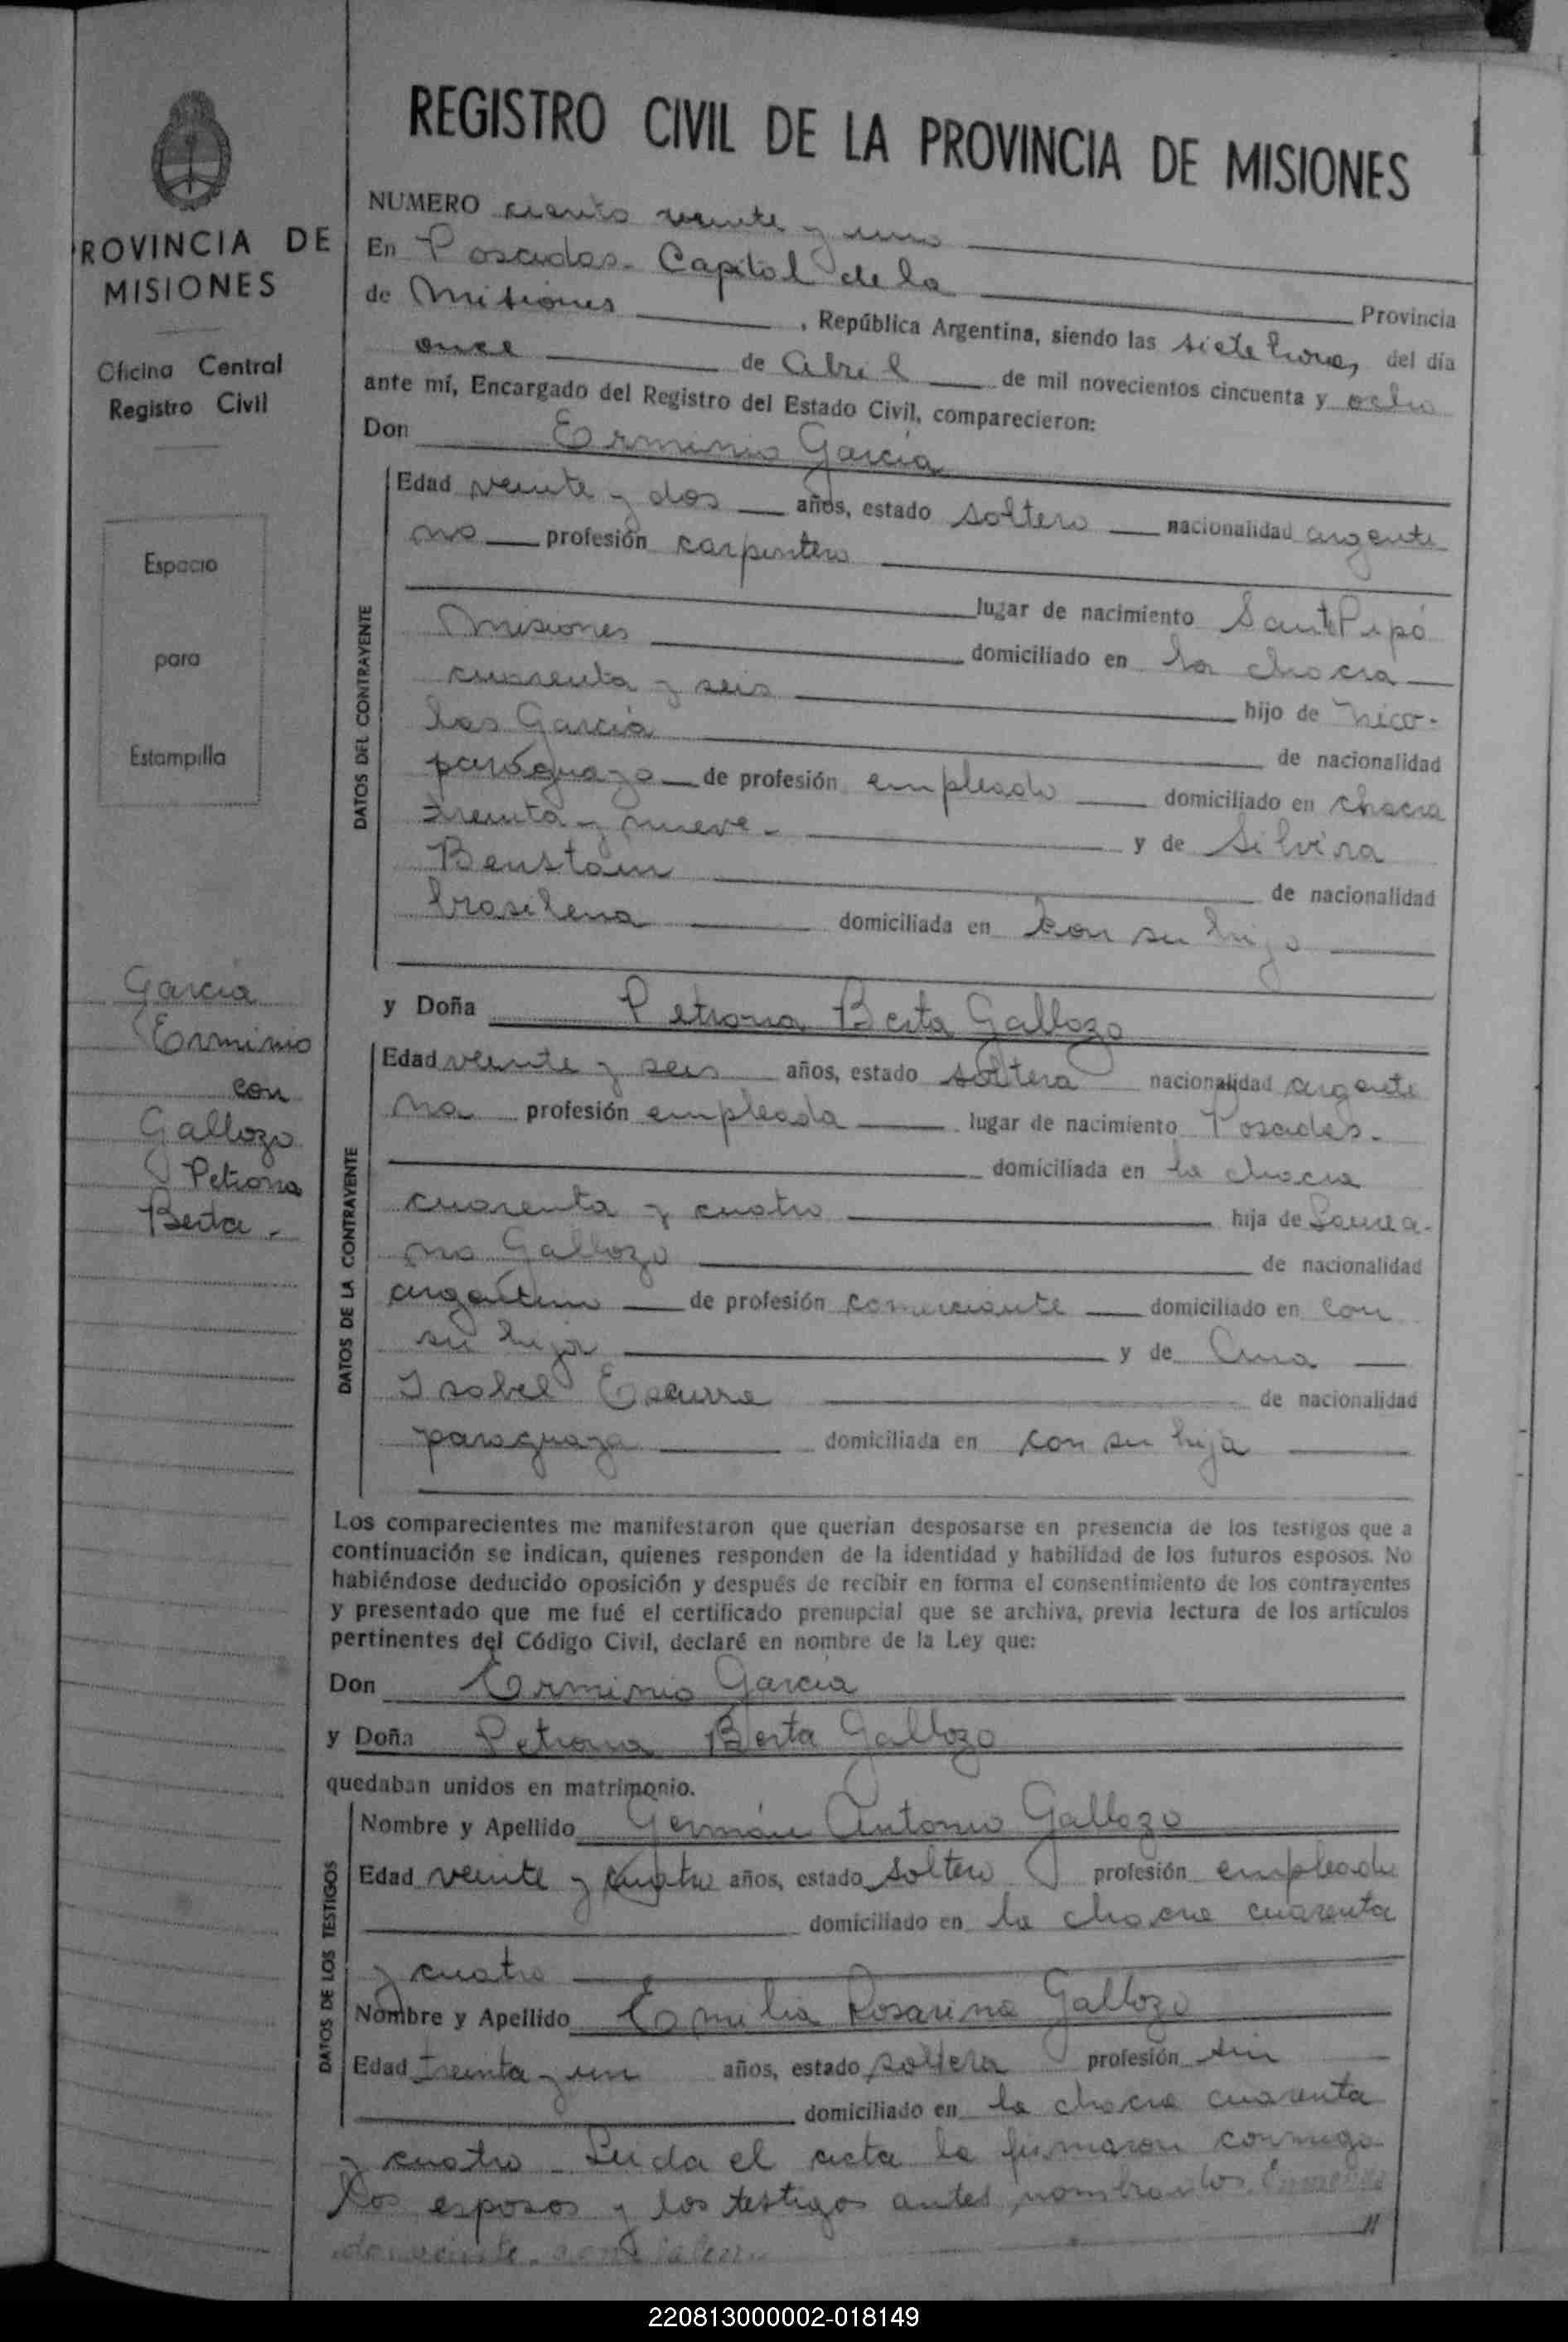 REGISTRO CIVIL DE LA PROVINCIA DE MISIONES
PROVINCIA DE
MISIONES
Oficina Central
Registro Civil
Espacio
para
Estampilla
García
Erminio
con
Gallozo
Petrona
Berta -
NUMERO ciento veinte y uno
En Posadas - Capital de la Provincia
de Misiones , República Argentina, siendo las siete horas, del día
once de Abril de mil novecientos cincuenta y ocho
ante mí, Encargado del Registro del Estado Civil, comparecieron:
Don Erminio García
DATOS DEL CONTRAYENTE
Edad veinte y dos años, estado soltero nacionalidad argenti
no profesión carpintero
lugar de nacimiento Santo Pipó
Misiones domiciliado en la chacra
cuarenta y seis hijo de Nico-
las García de nacionalidad
paraguayo de profesión empleado domiciliado en chacra
treinta y nueve - y de Silvira
de nacionalidad
brasilena domiciliada en con su hijo
y Doña Petrona Berta Gallozo
DATOS DE LA CONTRAYENTE
Edad veinte y seis años, estado soltera nacionalidad argenti
na profesión empleada lugar de nacimiento Posadas -
domiciliada en la chacra
cuarenta y cuatro hija de
no Gallozo de nacionalidad
argentino de profesión comerciante domiciliado en con
su hija y de Ana
Isabel Escurra de nacionalidad
paraguaya domiciliada en con su hija
Los comparecientes me manifestaron que querían desposarse en presencia de los testigos que a
continuación se indican, quienes responden de la identidad y habilidad de los futuros esposos. No
habiéndose deducido oposición y después de recibir en forma el consentimiento de los contrayentes
y presentado que me fué el certificado prenupcial que se archiva, previa lectura de los artículos
pertinentes del Código Civil, declaré en nombre de la Ley que:
Don Erminio García
y Doña Petrona Berta Gallozo
quedaban unidos en matrimonio.
DATOS DE LOS TESTIGOS
Nombre y Apellido Germán Antonio Gallozo
Edad veinte y cuatro años, estado soltero profesión empleado
domiciliado en la chacra cuarenta
y cuatro
Nombre y Apellido Emilia Rosarina Gallozo
Edad treinta y un años, estado soltera profesión sin
domiciliado en la chacra cuarenta
y cuatro - Leida el acta la firmaron conmigo
los esposos y los testigos antes nombrados.
220813000002-018149